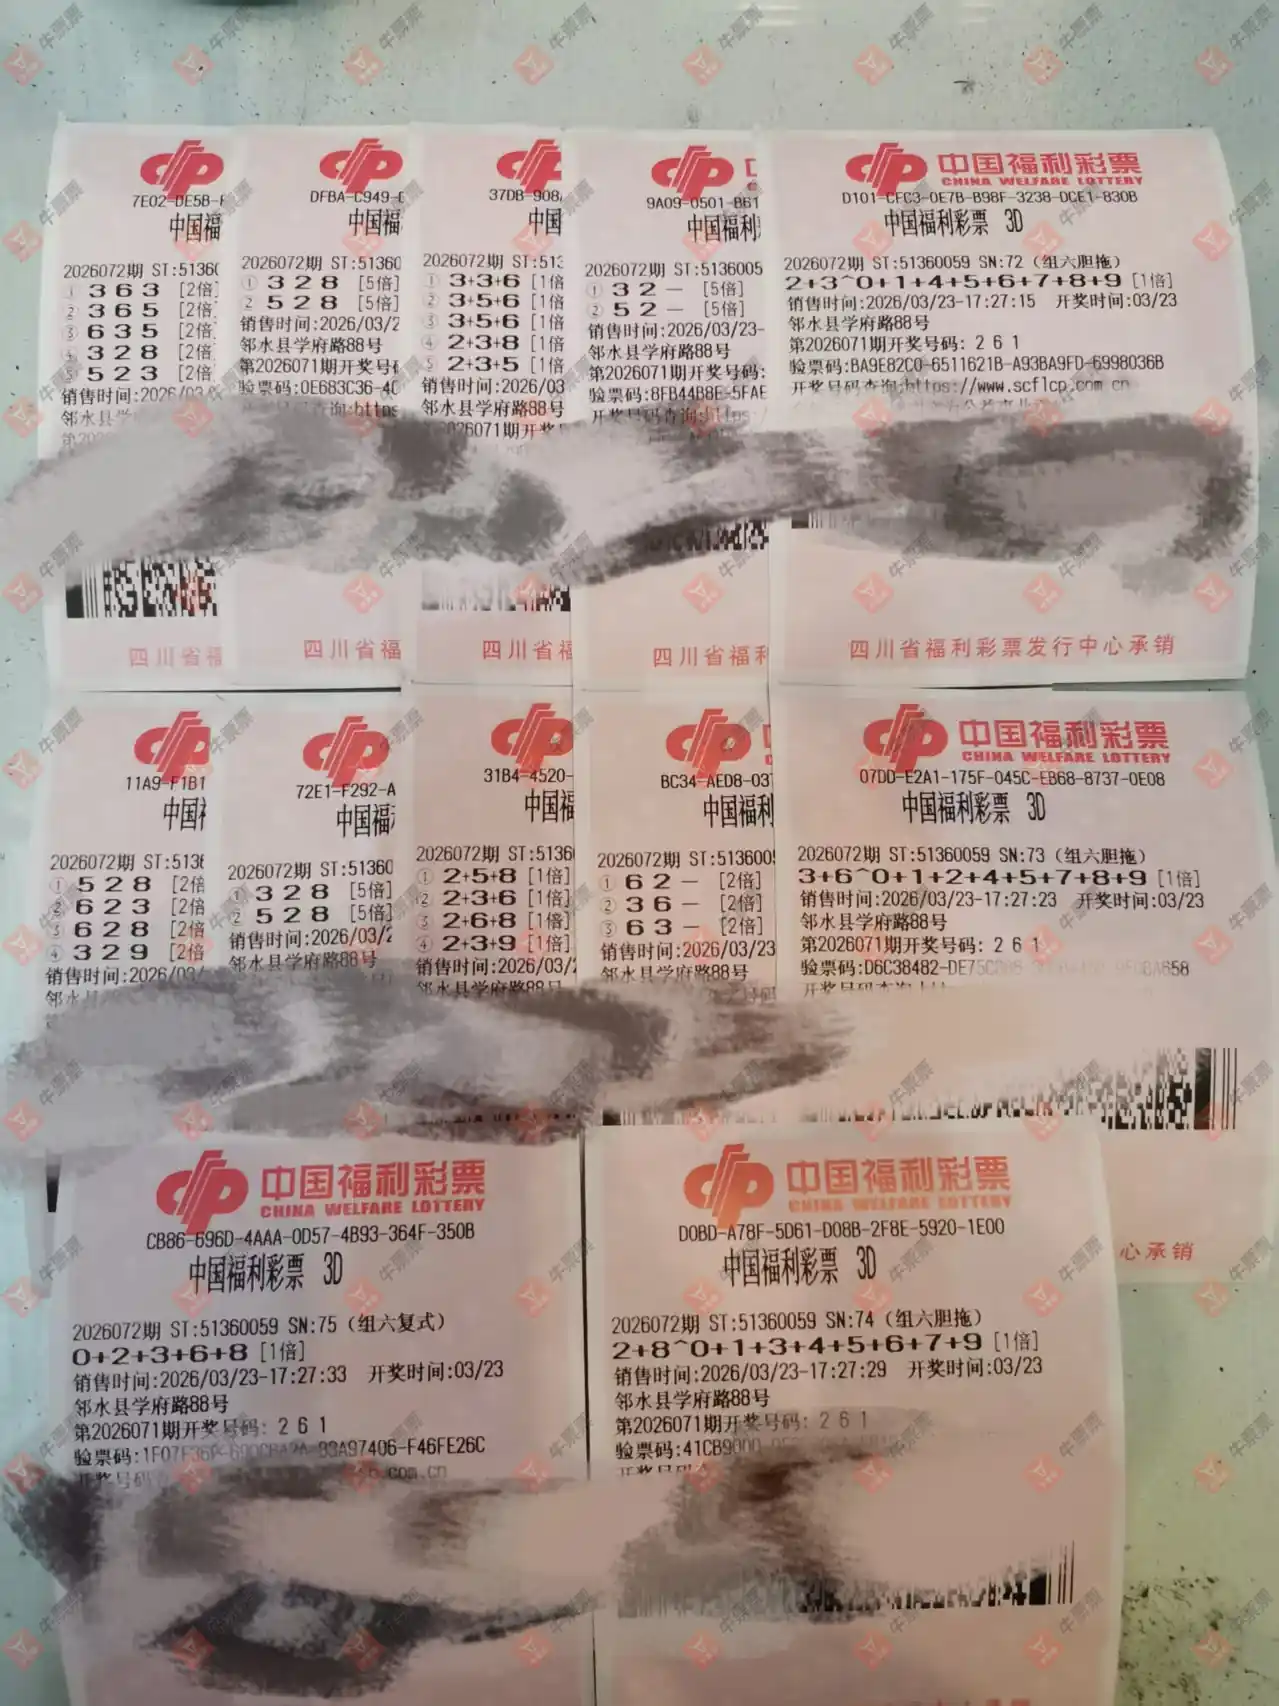 7E02-DE5B-F
中国福
2026072期 ST:5136(
① 3 6 3 [2倍]
② 3 6 5 [2倍]
③ 6 3 5 [2倍]
④ 3 2 8 [2倍
⑤ 5 2 3 [2倍]
销售时间:2026/03/
邻水县学
四川省福
DFBA-C949-
中国福
2026072期 ST:51360
① 3 2 8 [5倍]
② 5 2 8 [5倍]
销售时间:2026/03/2
邻水县学府路88号
第2026071期开奖号码
验票码:0E683C36-4C
四川省福
37DB-908
中国
2026072期 ST:513
① 3+3+6 [1倍
② 3+5+6 [1倍
③ 3+5+6 [1倍
④ 2+3+8 [1倍
⑤ 2+3+5 [1倍
销售时间:2026/03
邻水县学府路88号
2026071期开奖号
四川省福
9A09-0501-B61
中国福利
2026072期 ST:5136005
① 3 2 — [5倍]
② 5 2 — [5倍]
销售时间:2026/03/23-
邻水县学府路88号
第2026071期开奖号码:
验票码:8FB44B8E-5FAE
开奖号码查询:https:
四川省福利
中国福利彩票
CHINA WELFARE LOTTERY
D101-CFC3-0E7B-B98F-3238-DCE1-830B
中国福利彩票 3D
2026072期 ST:51360059 SN:72 (组六胆拖)
2+3^0+1+4+5+6+7+8+9 [1倍]
销售时间:2026/03/23-17:27:15 开奖时间:03/23
邻水县学府路88号
第2026071期开奖号码: 2 6 1
验票码:BA9E82C0-6511621B-A93BA9FD-6998036B
开奖号码查询:https://www.scflcp.com.cn
四川省福利彩票发行中心承销
11A9-F1B1
中国福
2026072期 ST:5136
① 5 2 8 [2倍
② 6 2 3 [2倍
③ 6 2 8 [2倍
④ 3 2 9 [2倍
销售时间:2026/03/
72E1-F292-A
中国福
2026072期 ST:51360
① 3 2 8 [5倍]
② 5 2 8 [5倍]
销售时间:2026/03/2
邻水县学府路88号
31B4-4520-
中国福
2026072期 ST:51360
① 2+5+8 [1倍]
② 2+3+6 [1倍]
③ 2+6+8 [1倍]
④ 2+3+9 [1倍]
销售时间:2026/03/
邻水县学府路88号
BC34-AED8-037
中国福利
2026072期 ST:5136005
① 6 2 — [2倍]
② 3 6 — [2倍]
③ 6 3 — [2倍]
销售时间:2026/03/23
邻水县学府路88号
中国福利彩票
CHINA WELFARE LOTTERY
07DD-E2A1-175F-045C-EB68-8737-0E08
中国福利彩票 3D
2026072期 ST:51360059 SN:73 (组六胆拖)
3+6^0+1+2+4+5+7+8+9 [1倍]
销售时间:2026/03/23-17:27:23 开奖时间:03/23
邻水县学府路88号
第2026071期开奖号码: 2 6 1
验票码:D6C38482-DE75
心承销
中国福利彩票
CHINA WELFARE LOTTERY
CB86-696D-4AAA-0D57-4B93-364F-350B
中国福利彩票 3D
2026072期 ST:51360059 SN:75 (组六复式)
0+2+3+6+8 [1倍]
销售时间:2026/03/23-17:27:33 开奖时间:03/23
邻水县学府路88号
第2026071期开奖号码: 2 6 1
中国福利彩票
CHINA WELFARE LOTTERY
D0BD-A78F-5D61-D08B-2F8E-5920-1E00
中国福利彩票 3D
2026072期 ST:51360059 SN:74 (组六胆拖)
2+8^0+1+3+4+5+6+7+9 [1倍]
销售时间:2026/03/23-17:27:29 开奖时间:03/23
邻水县学府路88号
第2026071期开奖号码: 2 6 1
验票码:41CB9000
牛票票